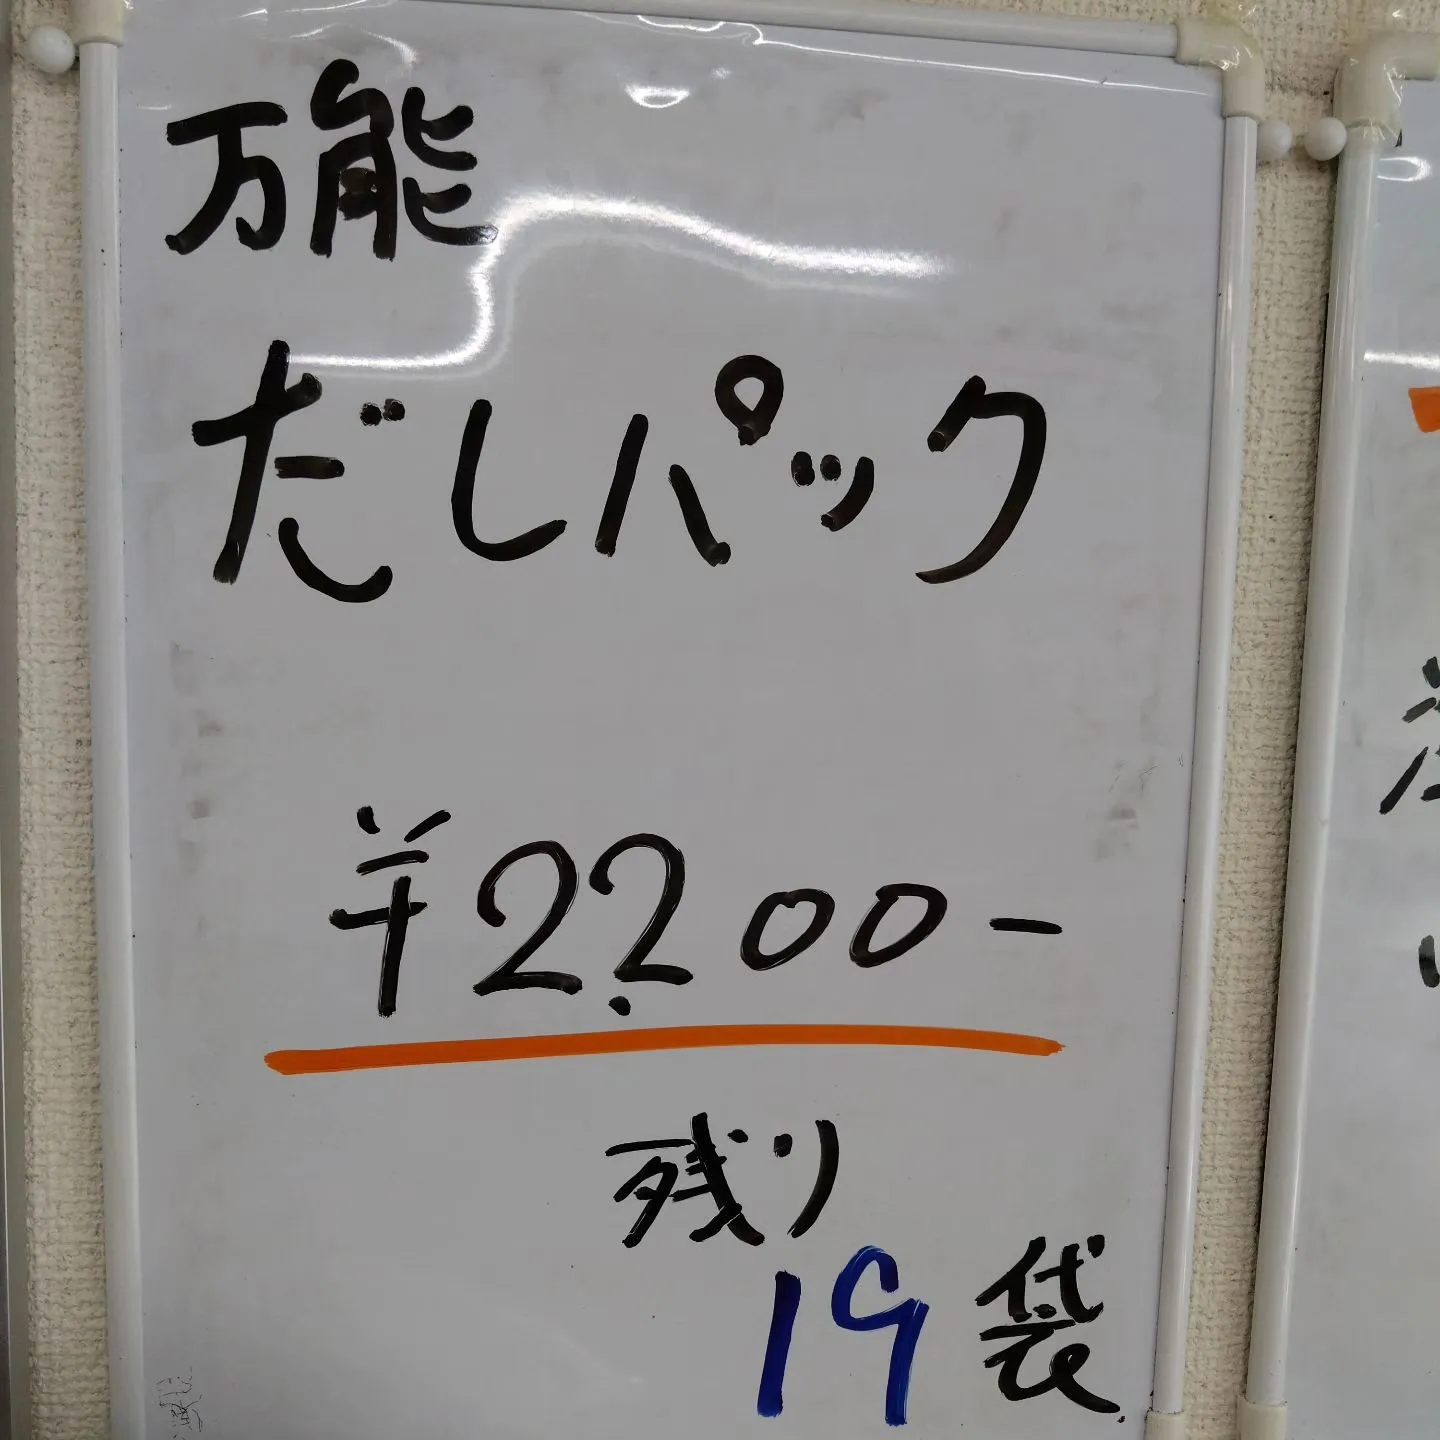 万能
だしパック
¥2,200-
残り
19袋